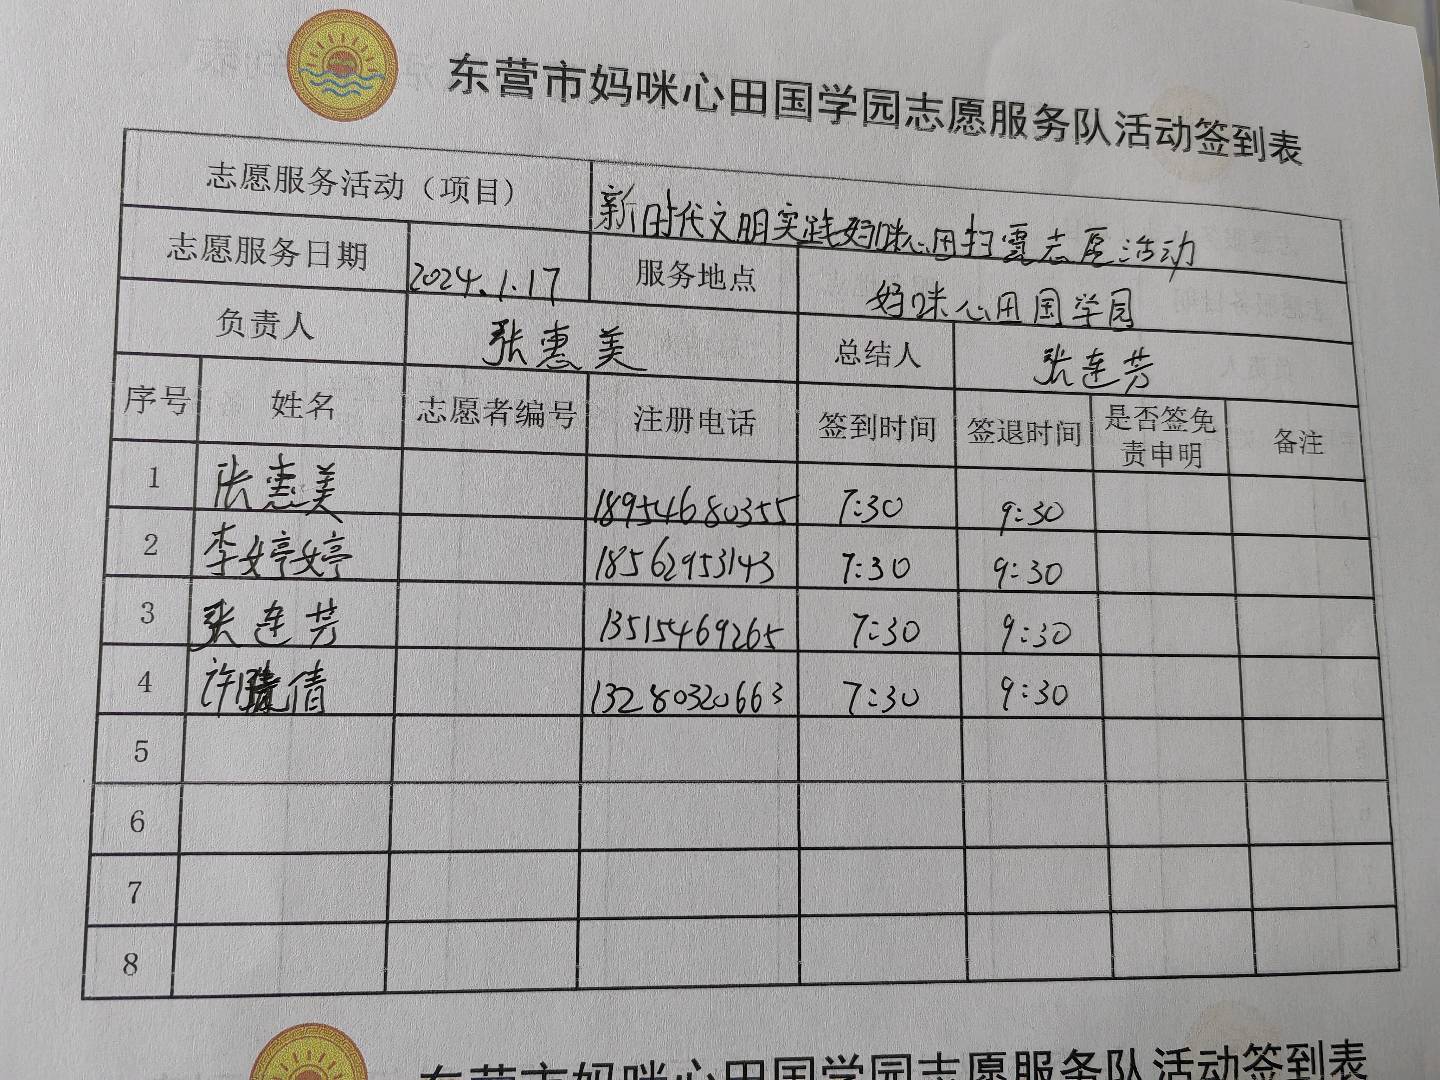 东营市妈咪心田国学园志愿服务队活动签到表
志愿服务活动（项目） 新时代文明实践妈咪心田扫雪志愿活动
志愿服务日期 2024.1.17 服务地点 妈咪心田国学园
负责人 张惠美 总结人 张连芳
序号 姓名 志愿者编号 注册电话 签到时间 签退时间 是否签免责申明 备注
1 张惠美 18954680355 7:30 9:30
2 李婷婷 18562953143 7:30 9:30
3 张连芳 13515469265 7:30 9:30
4 许晓倩 13280320663 7:30 9:30
5
6
7
8
东营市妈咪心田国学园志愿服务队活动签到表